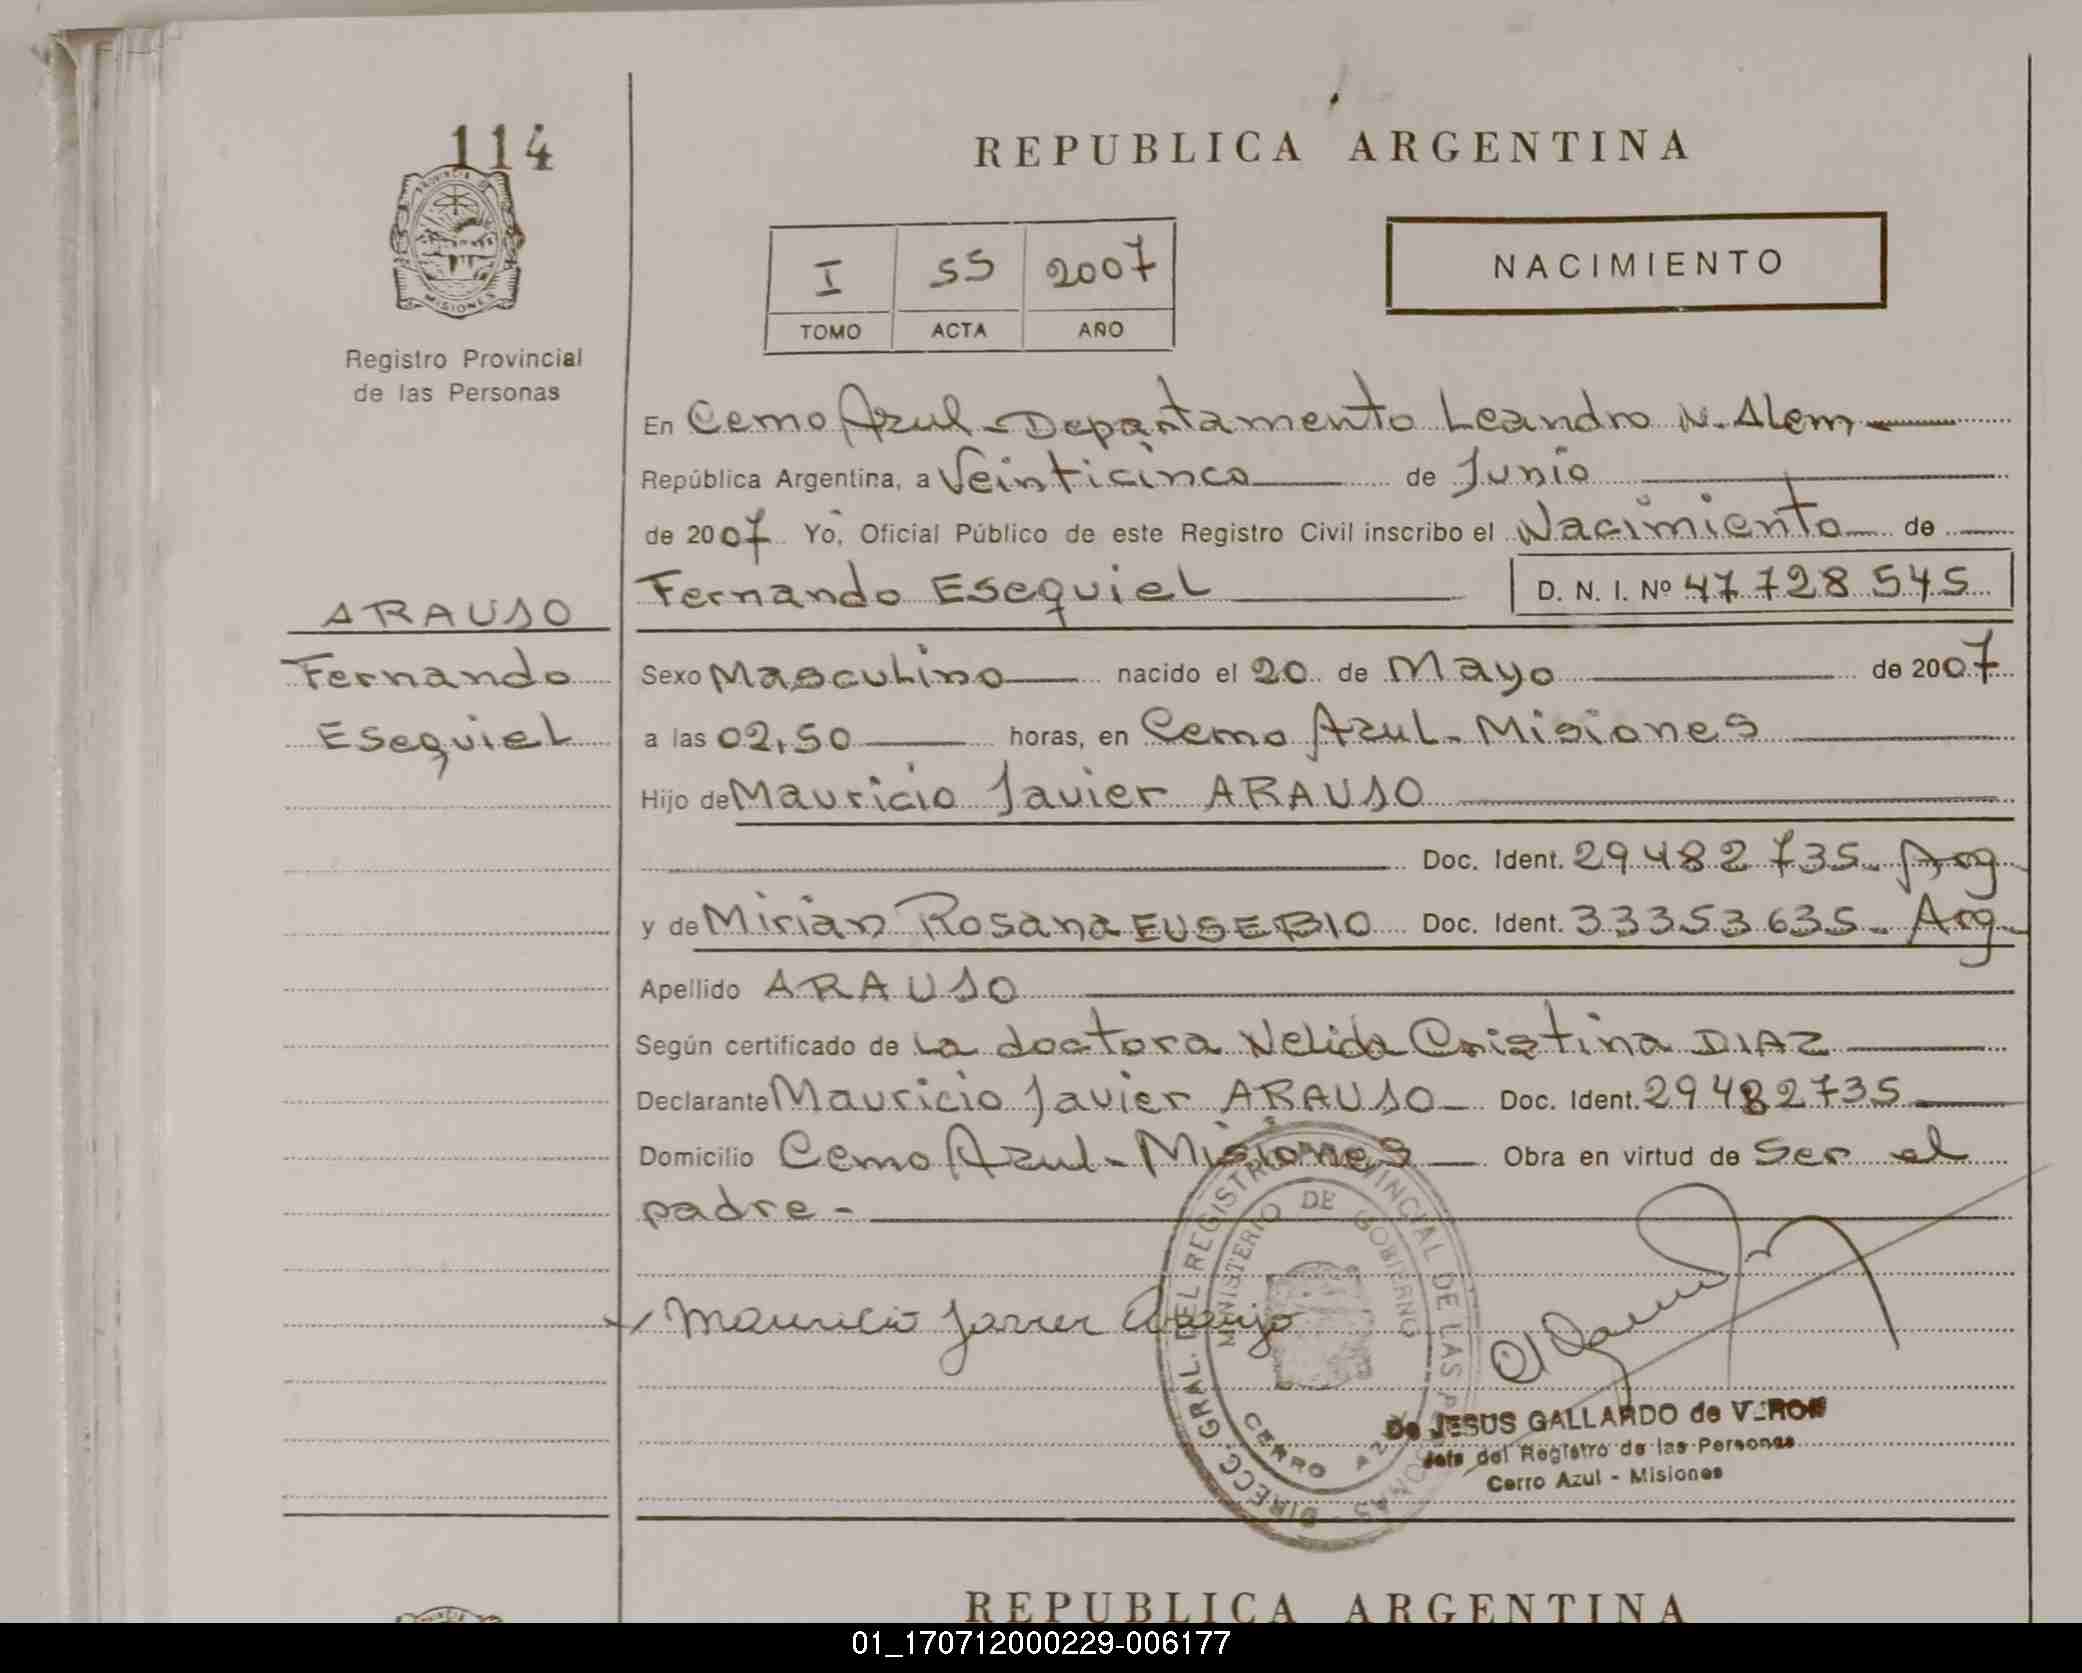 114
PROVINCIA DE
MISIONES
Registro Provincial
de las Personas
REPUBLICA ARGENTINA
I 55 2007
TOMO ACTA AÑO
NACIMIENTO
En Cerro Azul - Departamento Leandro N. Alem
República Argentina, a Veinticinco de Junio
de 2007 Yo, Oficial Público de este Registro Civil inscribo el Nacimiento de
ARAUJO
Fernando
Esequiel
Fernando Esequiel D. N. I. Nº 47 728 545
Sexo Masculino nacido el 20 de Mayo de 2007
a las 02,50 horas, en Cerro Azul - Misiones
Hijo de Mauricio Javier ARAUJO
Doc. Ident. 29482735 - Arg
y de Mirian Rosana EUSEBIO Doc. Ident. 33353635 - Arg
Apellido ARAUJO
Según certificado de La doctora Nelida Cristina DIAZ
Declarante Mauricio Javier ARAUJO Doc. Ident. 29482735
Domicilio Cerro Azul - Misiones Obra en virtud de ser el
padre -
Mauricio Javier Araujo
DIRECC. GRAL. DEL REGISTRO PROVINCIAL DE LAS PERSONAS
MINISTERIO DE GOBIERNO
CERRO AZUL
De JESUS GALLARDO de VERON
Jefe del Registro de las Personas
Cerro Azul - Misiones
REPUBLICA ARGENTINA
01_170712000229-006177